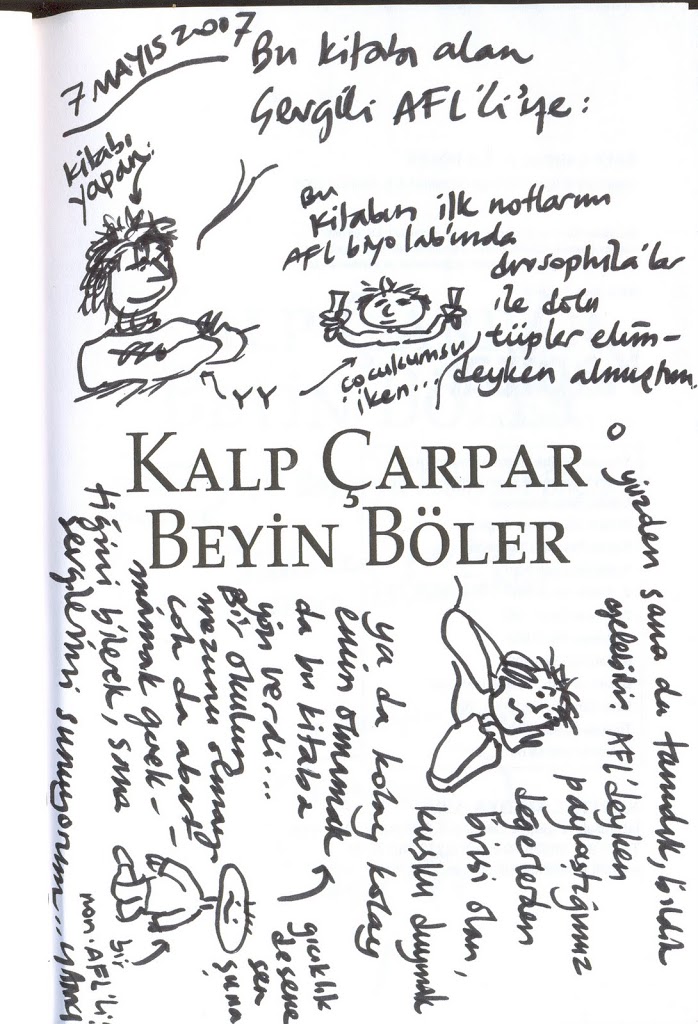 7 MAYIS 2007
Bu kitabı alan
Sevgili AFL'li'ye:
kitabı
yapan:
YY
Bu
kitabın ilk notlarını
AFL biyo lab'ında
drosophila'lar
ile dolu
tüpler elim-
deyken almıştım.
çocukcumsu
iken...
KALP ÇARPAR
BEYİN BÖLER
O yüzden sana da tanıdık, bildik
gelebilir. AFL'deyken
paylaştığımız
değerlerden
birisi olan,
kuşku duymak
ya da kolay kolay
emin olmamak
da bu kitaba
yön verdi...
Bir okulun
mezunu olmayı
çok da abart-
mamak gerek-
tiğini bilerek, sana
sevgilerimi sunuyorum...
gıcıklık
desene
sen
şuna
bir
non-AFL'li!